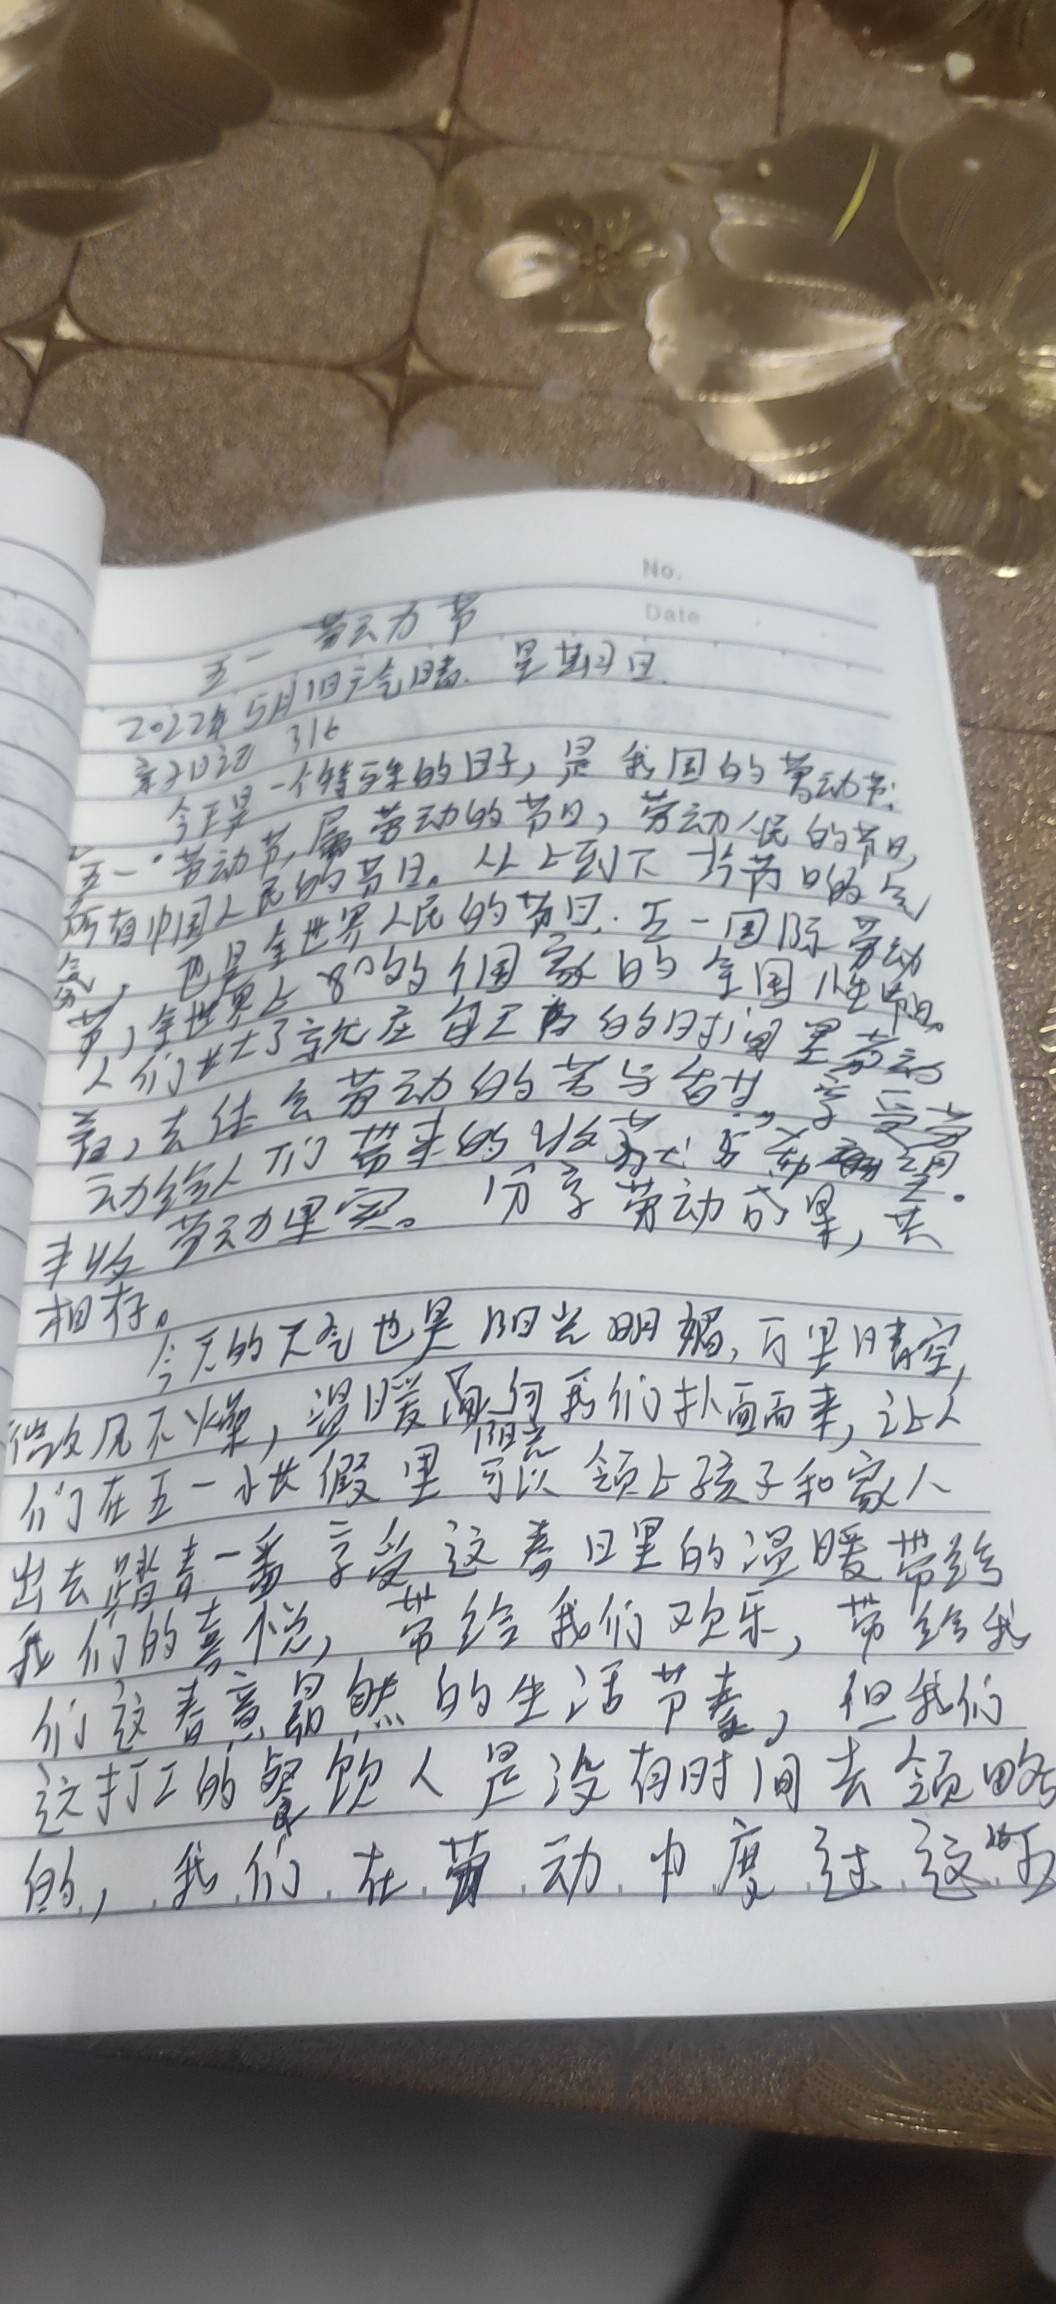 No.
Date
五一 劳动节
2022年5月1日天气晴. 星期日.
亲子日记 316
今天是一个特殊的日子, 是我国的劳动节.
"五一"劳动节, 属劳动的节日, 劳动人民的节日,
所有中国人民的节日。从上到下 节日的气
氛, 也是全世界人民的节日. 五一国际劳动
节, 全世界上80的个国家的全国性节日。
人们 就在每天 的时间里劳动
着, 去体会劳动的苦与甘 享受劳
动给人们带来的收获与
丰收劳动果实。 分享劳动成果, 共
相存。
今天的天气也是阳光明媚, 万里晴空,
微风不燥, 温暖 阳光 向我们扑面而来, 让人
们在五一小长假里可以领上孩子和家人
出去踏青一番享受这春日里的温暖带给
我们的喜悦, 带给我们欢乐, 带给我
们这春意昂然的生活节奏, 但我们
这打工的餐饮人是没有时间去领略
的, 我们在劳动中度过这